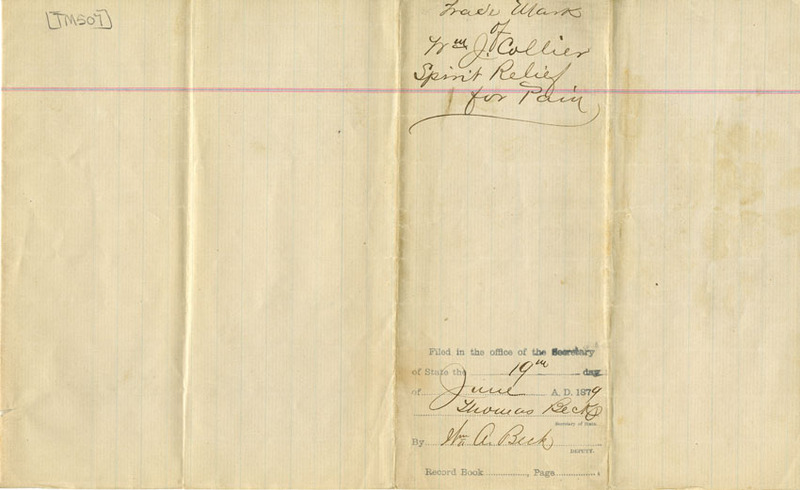 [TM507]
Trade Mark
of
Wm J. Collier
Spirit Relief
for Pain
Filed in the office of the Secretary
of State the 19th day
of June A. D. 1879
Thomas Beck
Secretary of State.
By Wm A. Beck
DEPUTY.
Record Book ............, Page ............